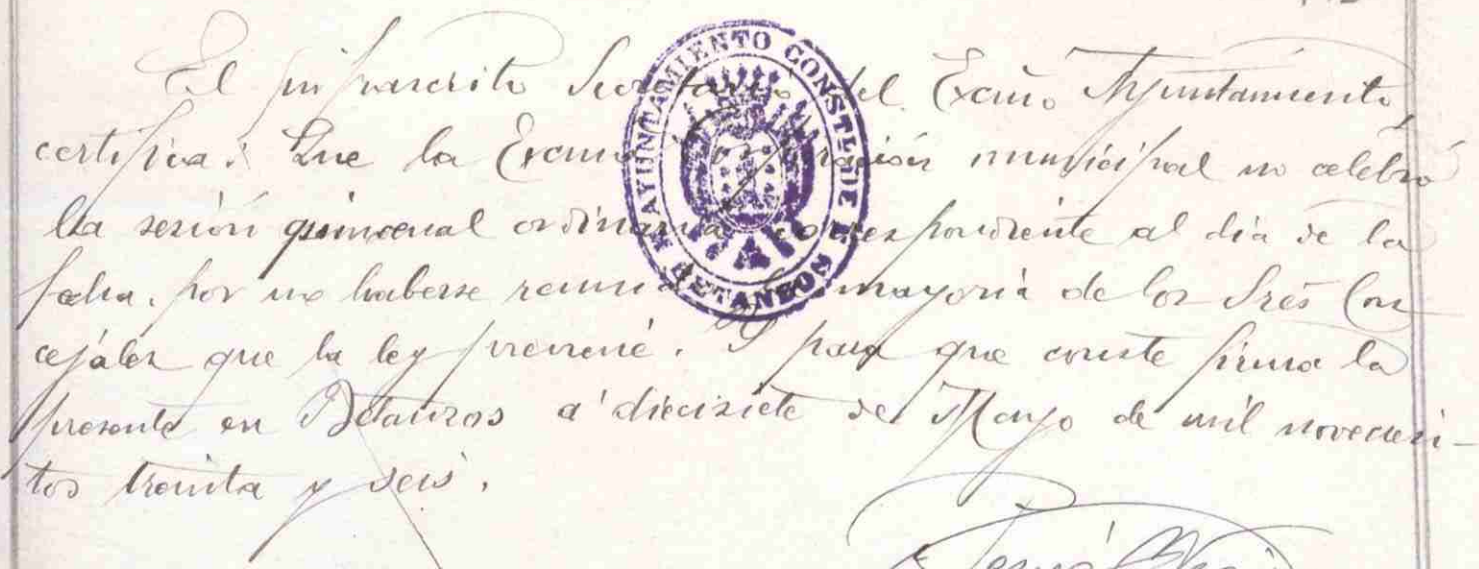 El infrascrito Secretario del Excmo Ayuntamiento,
certifica: Que la Excma Corporación municipal no celebró
la sesión quincenal ordinaria correspondiente al día de la
fecha, por no haberse reunido la mayoría de los Sres Con
cejales que la ley previene. Y para que conste firmo la
presente en Betanzos a diecisiete de Mayo de mil novecien-
tos treinta y seis.
AYUNTAMIENTO CONSTL. DE BETANZOS